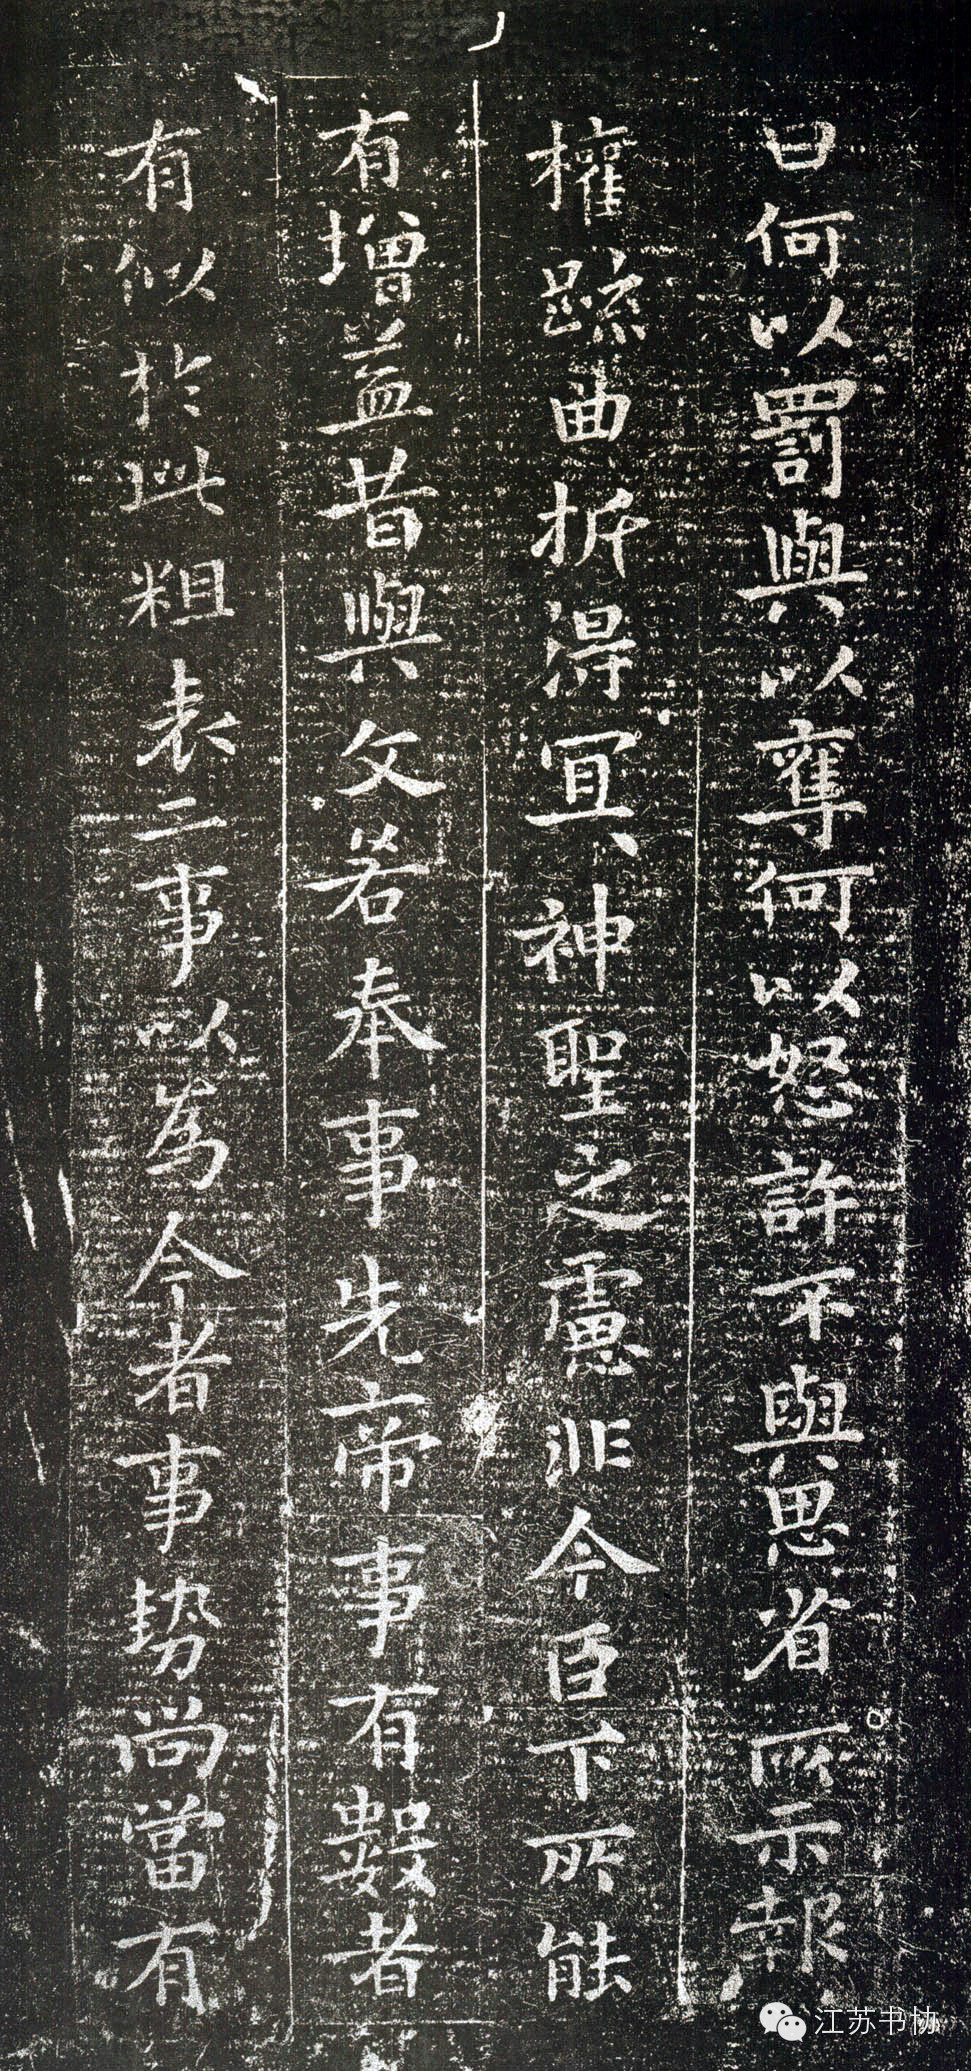 曰何以罰與以奪何以怒許不與思省所示報
權踈曲折得宜神聖之慮非今臣下所能
有增益昔與文若奉事先帝事有數者
有似於此粗表二事以為今者事勢尚當有
江苏书协